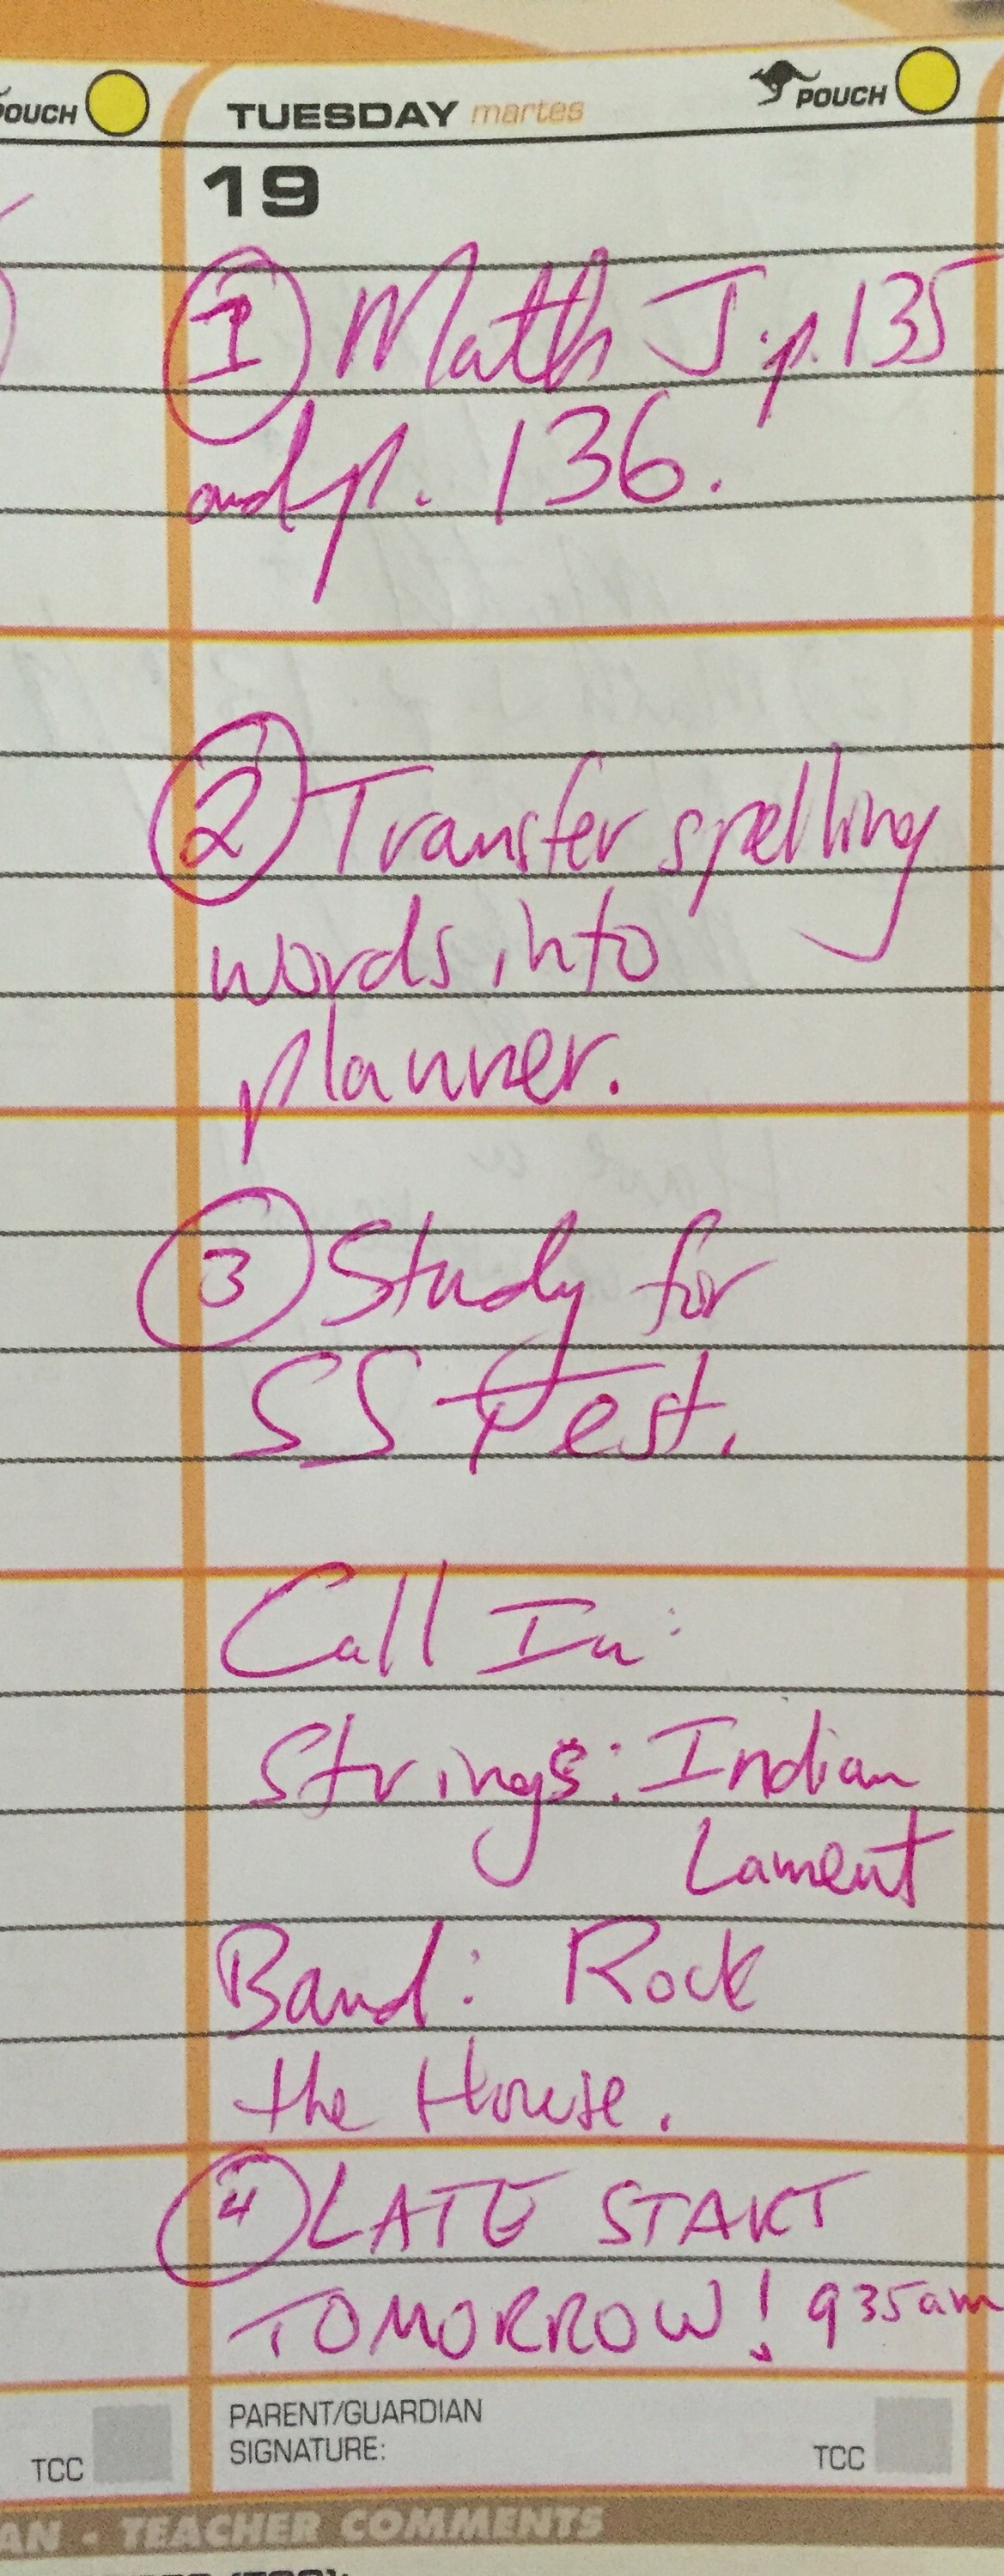 POUCH
TUESDAY martes
POUCH
19
1 Math J. p. 135
and p. 136.
2 Transfer spelling
words into
planner.
3 Study for
SS Test.
Call In:
Strings: Indian
Lament
Band: Rock
the House.
4 LATE START
TOMORROW! 935am
PARENT/GUARDIAN
SIGNATURE:
TCC
TCC
AN - TEACHER COMMENTS